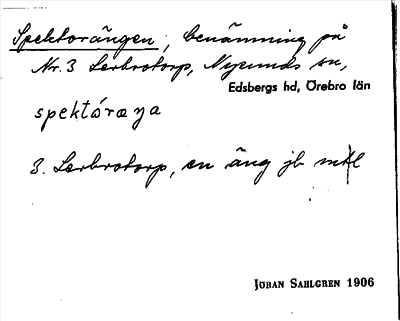 Spektorängen, benämning på
Nr. 3 Lerbrotorp, Nysunds sn,
Edsbergs hd, Örebro län
spektóræŋa
3. Lerbrotorp, en äng jb
JOHAN SAHLGREN 1906